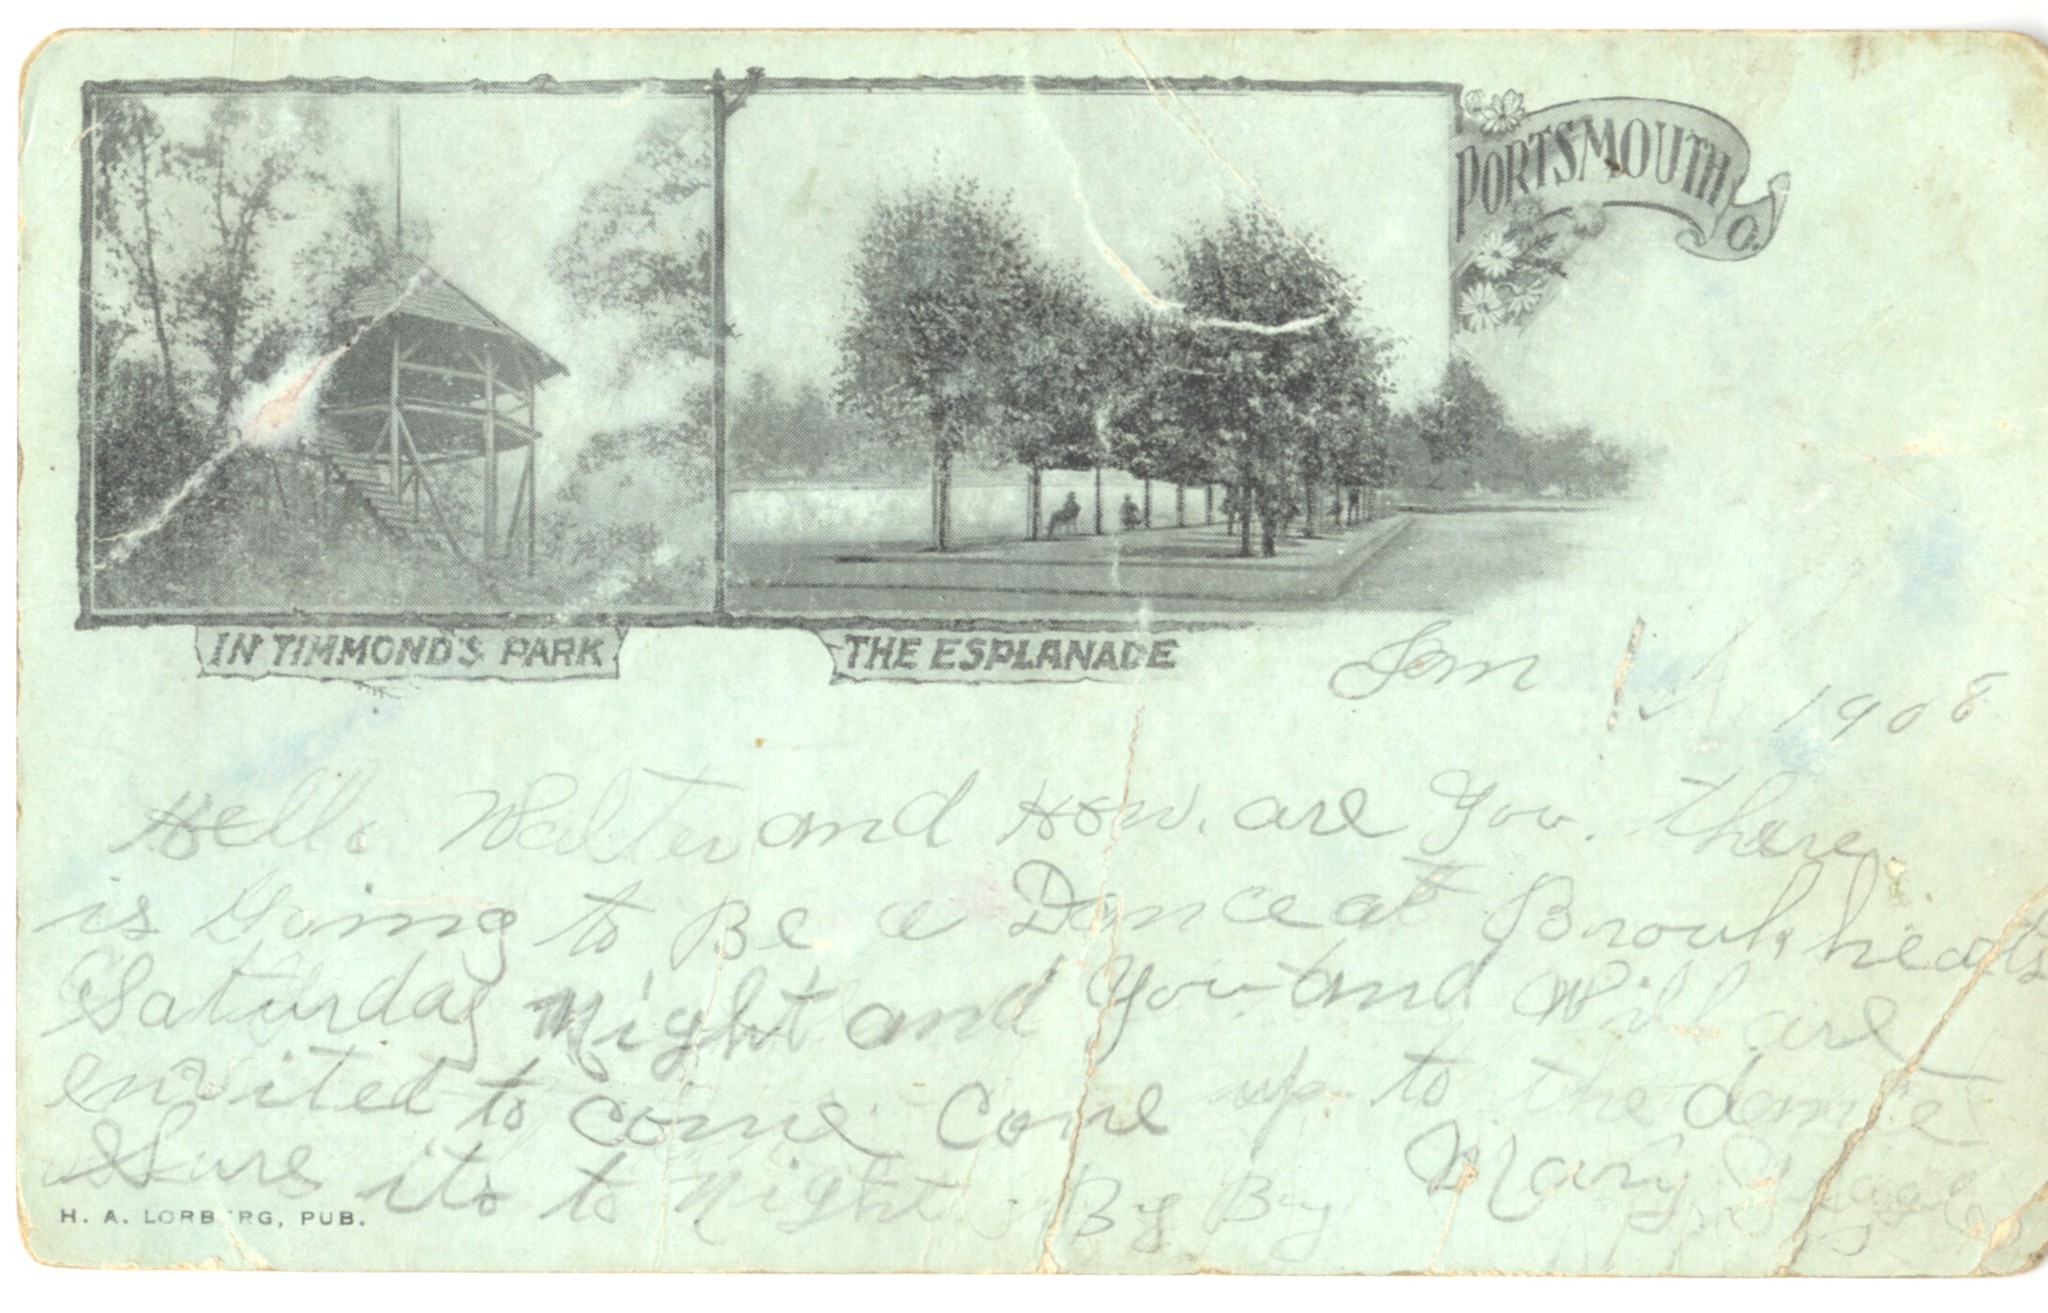 PORTSMOUTH O.
IN TIMMOND'S PARK
THE ESPLANADE
Jan 1 1908
Hello Walter and How are You. there
is Going to Be a Dance at
Saturday Night and You and Will are
envited to come. Come up to the dance
Sure its to Night. By By Mary
H. A. LORBERG, PUB.